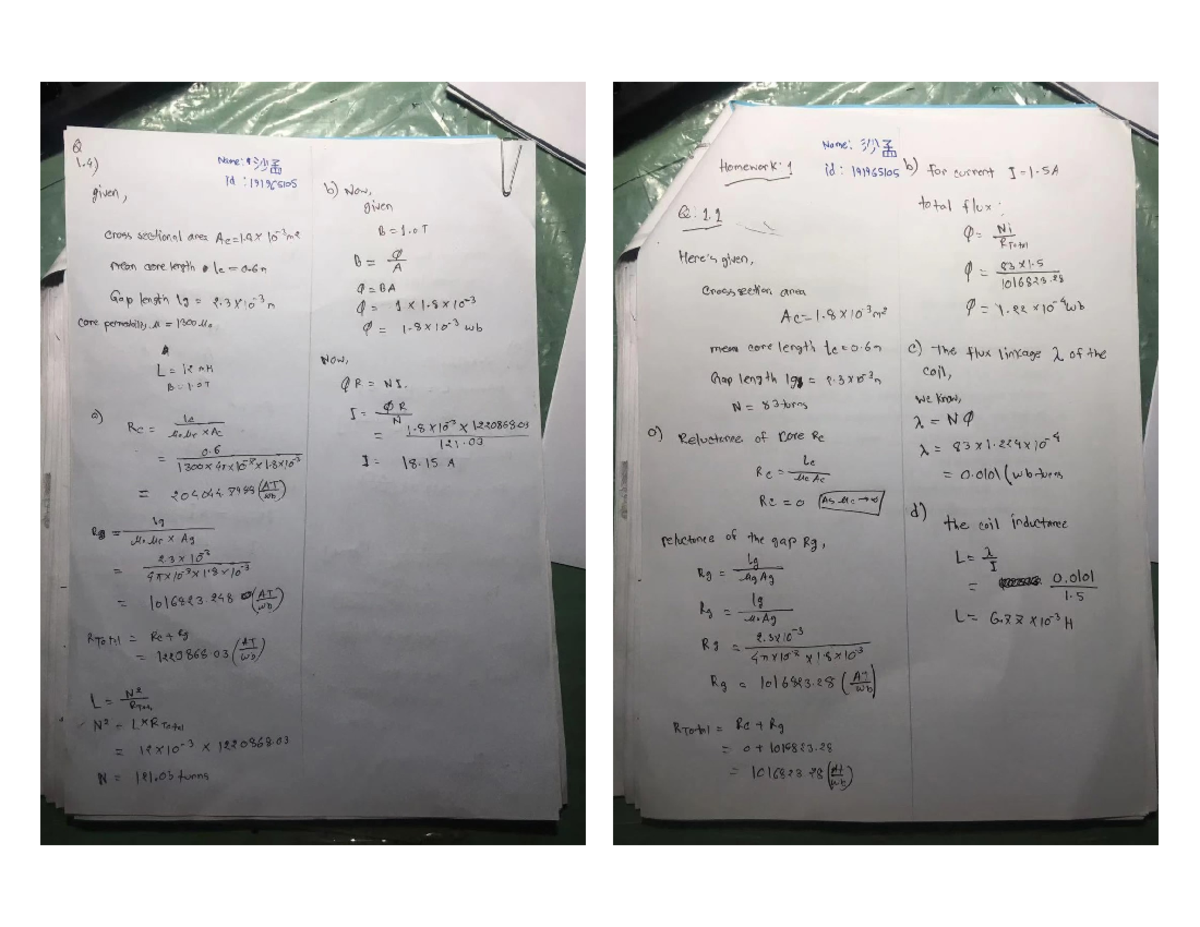 Q
1.4)
Name: 沙孟
id : 191965105
given,
cross sectional area Ac=1.8 x 10⁻³m²
mean core length lc = 0.6m
Gap length lg = 2.3 x 10⁻³m
core permeability μ = 1300 μ₀
L = 12 mH
B = 1.0T
a)
Rc = lc / μ₀μr x Ac
= 0.6 / 1300 x 4π x 10⁻⁷ x 1.8 x 10⁻³
= (AT/wb)
Rg = lg / μ₀ μr x Ag
= 2.3 x 10⁻³ / 4π x 10⁻⁷ x 1.8 x 10⁻³
= 1016823.248 (AT/wb)
RTotal = Rc + Rg
= 1220868.03 (AT/wb)
L = N² / RTotal
N² = L x RTotal
= 12 x 10⁻³ x 1220868.03
N = 121.03 turns
b) Now,
given
B = 1.0T
B = φ/A
φ = BA
φ = 1 x 1.8 x 10⁻³
φ = 1.8 x 10⁻³ wb
Now,
φR = NI.
I = φR / N
= 1.8 x 10⁻³ x 1220868.03 / 121.03
I = 18.15 A
Name: 沙孟
id : 191965105
Homework: 1
Q: 1.1
Here's given,
Cross section area
Ac = 1.8 x 10⁻³m²
mean core length lc = 0.6m
Gap length lg = 2.3 x 10⁻³m
N = 83 turns
a) Reluctance of core Rc
Rc = lc / μc Ac
Rc = 0 As μc → ∞
reluctance of the gap Rg,
Rg = lg / μg Ag
Rg = lg / μ₀ Ag
Rg = 2.3 x 10⁻³ / 4π x 10⁻⁷ x 1.8 x 10⁻³
Rg = 1016823.28 (AT/wb)
RTotal = Rc + Rg
= 0 + 1016823.28
= 1016823.28 (AT/wb)
b) for current I = 1.5A
total flux:
φ = Ni / RTotal
φ = 83 x 1.5 / 1016823.28
φ = 1.22 x 10⁻⁴ wb
c) The flux linkage λ of the
coil,
we know,
λ = Nφ
λ = 83 x 1.224 x 10⁻⁴
= 0.0101 (wb-turns
d)
the coil inductance
L = λ / I
= 0.0101 / 1.5
L = 6.77 x 10⁻³ H